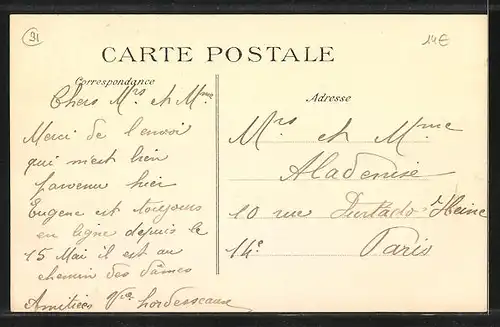 91
14€
CARTE POSTALE
Correspondance
Chers Mrs et Mme
Merci de l'envoi
qui m'est bien
parvenu hier
Eugene est toujours
en ligne depuis le
15 Mai il est au
chemin des dames
Amitiées Vve
Adresse
Mrs et Mme
Aladenise
10 rue Furtado-Heine
14e Paris